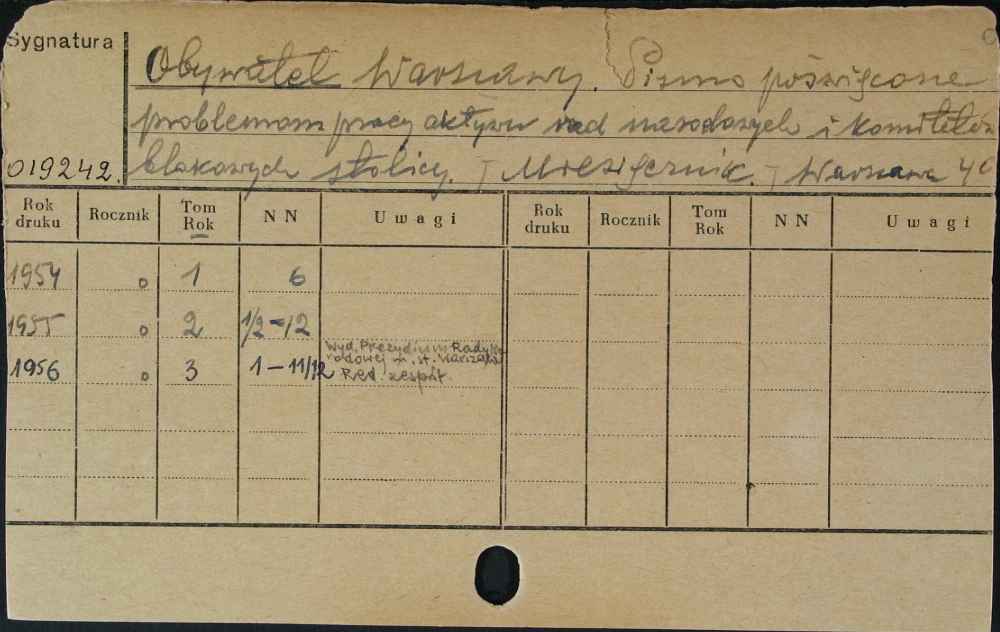 Sygnatura
Obywatel Warszawy. Pismo poświęcone
problemom pracy aktywu rad narodowych i komitetów
019242. blokowych stolicy. – Miesięcznik. – Warszawa 4°
Rok druku Rocznik Tom Rok NN Uwagi Rok druku Rocznik Tom Rok NN Uwagi
1954 0 1 6
1955 0 2 1/2–12
Wyd. Prezydium Rady Na-
rodowej m. st. Warszawy
1956 0 3 1–11/12 Red. zespół.